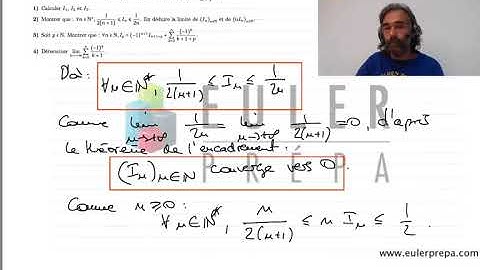 1) Calculer I₀, I₁ et I₂.
2) Montrer que : ∀n ∈ ℕ*, 1/(2(n+1)) ≤ Iₙ ≤ 1/(2n). En déduire la limite de (Iₙ)ₙ∈ℕ et de (nIₙ)ₙ∈ℕ.
3) Soit p ∈ ℕ. Montrer que : ∀n ∈ ℕ,
4) Déterminer lim
D'où : ∀n∈ℕ*, 1/(2(n+1)) ≤ Iₙ ≤ 1/(2n)
Comme lim n→+∞ 1/(2n) = lim n→+∞ 1/(2(n+1)) = 0, d'après
le théorème de l'encadrement :
(Iₙ)n∈ℕ converge vers 0.
Comme n ≥ 0 :
∀n∈ℕ*, n/(2(n+1)) ≤ n Iₙ ≤ 1/2.
EULER
PRÉPA
www.eulerprepa.com